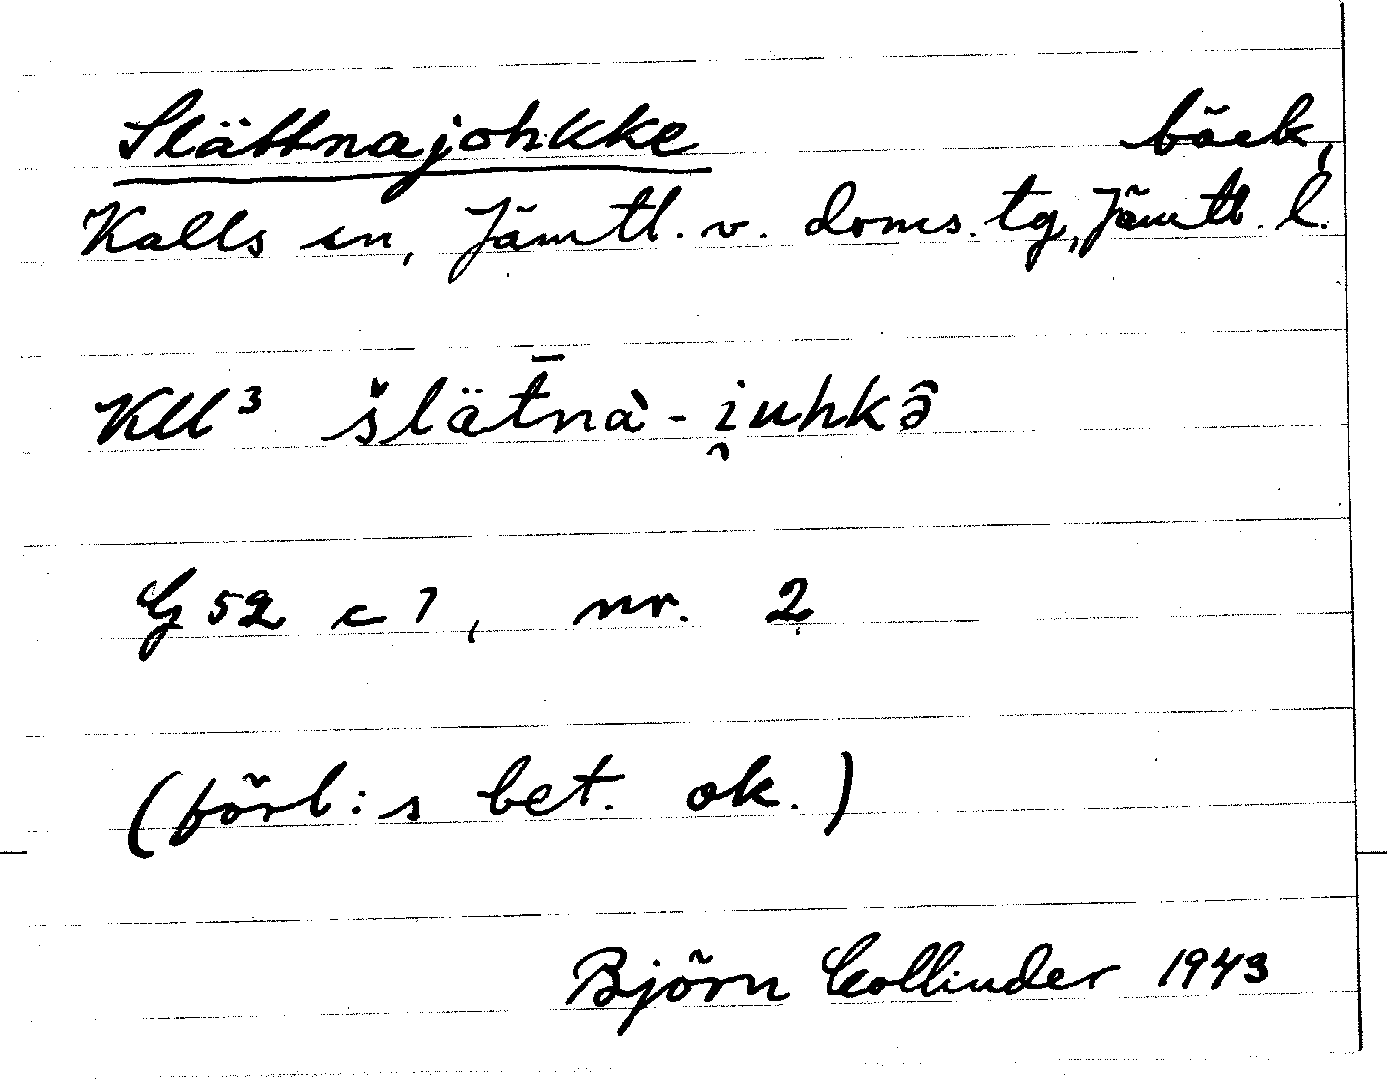 Slättnajohkke bäck,
Kalls sn, Jämtl. v. doms. tg, Jämtl. l.
Kll³ šlät̄nà-i̯uhkə̑
G 52 c 7, nr. 2
(förl:s bet. ok.)
Björn Collinder 1943